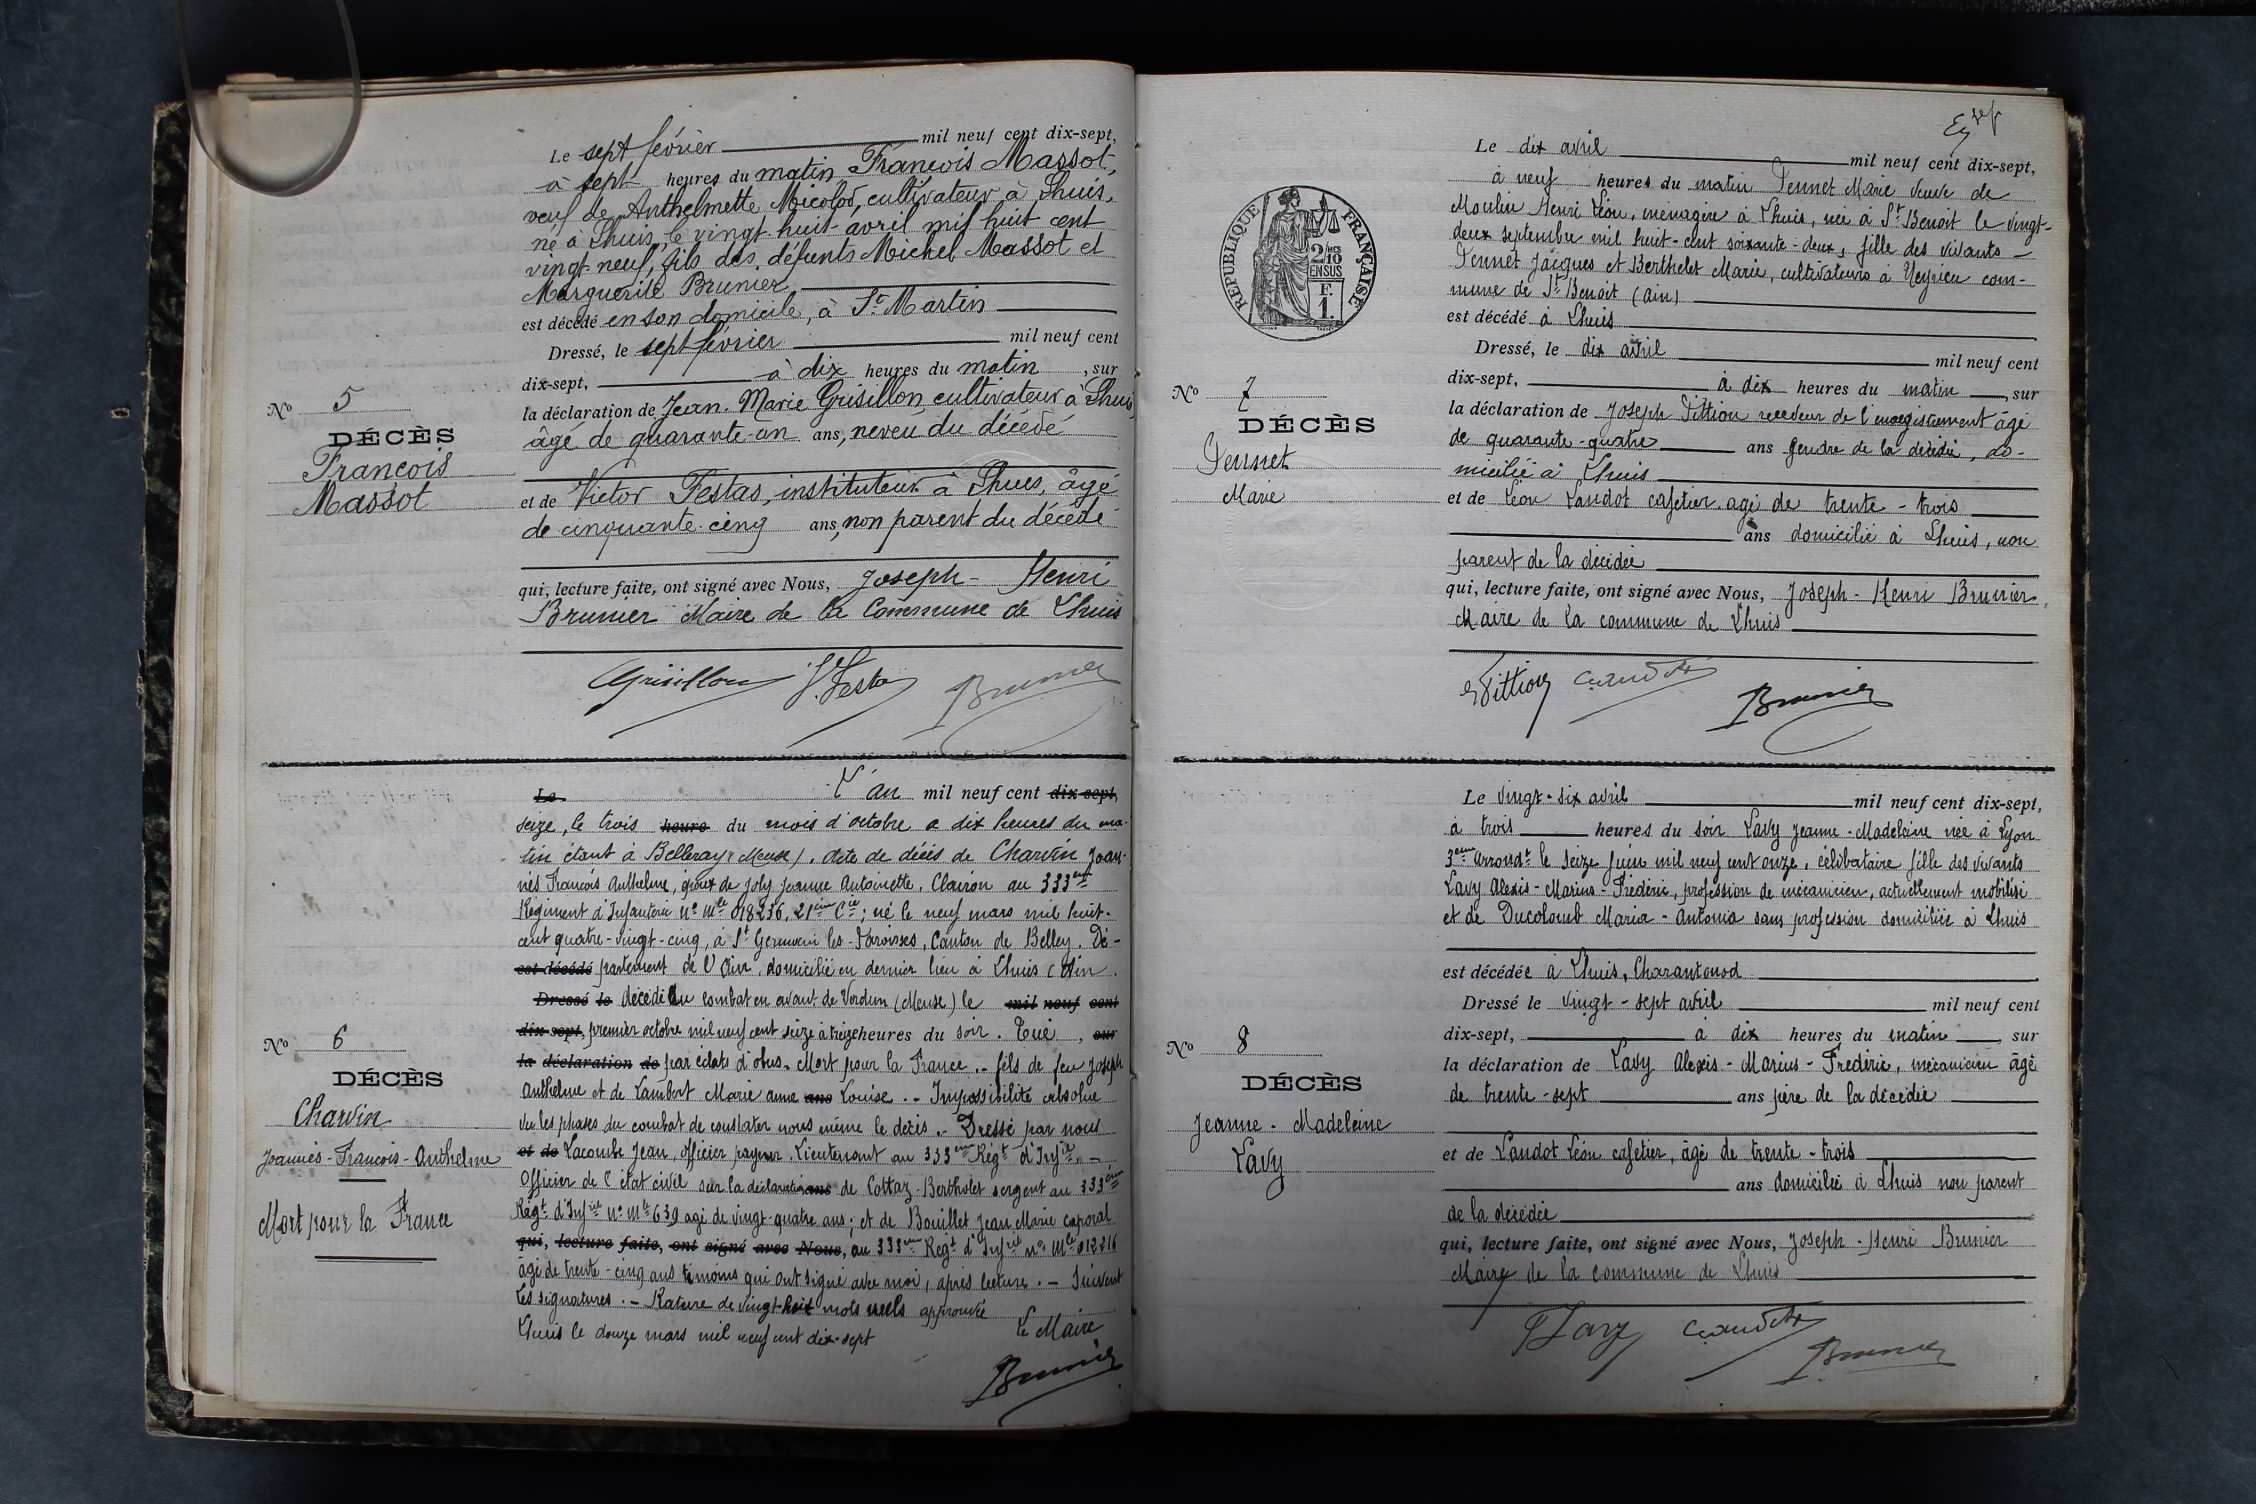 Le sept février mil neuf cent dix-sept,
à sept heures du matin François Massot,
veuf de Anthelmette Micolod, cultivateur à Lhuis,
né à Lhuis, le vingt-huit avril mil huit cent
vingt-neuf, fils des défunts Michel Massot et
Marguerite Brunier
est décédé en son domicile, à St Martin
Dressé, le sept février mil neuf cent
dix-sept, à dix heures du matin, sur
la déclaration de Jean-Marie Grisillon, cultivateur à Lhuis,
âgé de quarante-un ans, neveu du décédé
et de Victor Festas, instituteur à Lhuis, âgé
de cinquante-cinq ans, non parent du décédé
qui, lecture faite, ont signé avec Nous, Joseph-Henri
Brunier Maire de la Commune de Lhuis
Grisillon V. Festas Brunier
No 5
DÉCÈS
François
Massot
Le L'an mil neuf cent dix-sept,
seize, le trois heure du mois d'octobre a dix heures du ma-
tin étant à Belleray (Meuse). Acte de décès de Charvin Joan-
nès François Anthelme, époux de Joly Jeanne Antoinette, Clairon au 333ème
Régiment d'Infanterie No Mle 018236, 21ème Cie; né le neuf mars mil huit-
cent quatre-vingt-cinq, à St Germain les-Paroisses, Canton de Belley. Dé-
est décédé partement de l'Ain, domicilié en dernier lieu à Lhuis (Ain.
Dressé le décédé au combat en avant de Verdun (Meuse) le mil neuf cent
dix-sept, premier octobre mil neuf cent seize à treize heures du soir. Tué, sur
la déclaration de par éclats d'obus. Mort pour la France.- fils de feu Joseph
Anthelme et de Lambert Marie anne ans Louise.- Impossibilité absolue
vu les phases du combat de constater nous même le décès.- Dressé par nous
et de Lacombe Jean, officier payeur. Lieutenant au 333ème Régt d'Infie.-
Officier de l'état civil sur la déclaration ans de Cottaz-Bertholet sergent au 333ème
Régt d'Infie No Mle 639 agé de vingt-quatre ans; et de Bouillet Jean Marie caporal
qui, lecture faite, ont signé avec Nous, au 333ème Régt d'Infie no Mle 012216
âgé de trente-cinq ans témoins qui ont signé avec moi, après lecture.- Suivent
les signatures.- Rature de vingt-huit mots nuls approuvée
Lhuis le douze mars mil neuf cent dix-sept Le Maire
Brunier
No 6
DÉCÈS
Charvin
Joannès-François-Anthelme
Mort pour la France
RÉPUBLIQUE FRANÇAISE
2/10 EN SUS
F.
1.
Le dix avril mil neuf cent dix-sept,
à neuf heures du matin Pennet Marie veuve de
Moulin Henri Léon, ménagère à Lhuis, née à St Benoit le vingt-
deux septembre mil huit-cent soixante-deux, fille des vivants
Pennet Jacques et Berthelet Marie, cultivateurs à Veyrieu com-
mune de St Benoit (Ain)
est décédé à Lhuis
Dressé, le dix avril mil neuf cent
dix-sept, à dix heures du matin, sur
la déclaration de Joseph Pittion receveur de l'enregistrement âgé
de quarante-quatre ans gendre de la décédée, do-
micilié à Lhuis
et de Léon Landot cafetier agé de trente-trois
ans domicilié à Lhuis, non
parent de la décédée
qui, lecture faite, ont signé avec Nous, Joseph-Henri Brunier,
Maire de la commune de Lhuis
Pittion Landot Brunier
No 7
DÉCÈS
Pennet
Marie
Le vingt-six avril mil neuf cent dix-sept,
à trois heures du soir Lavy Jeanne-Madeleine née à Lyon
3ème Arrondt le seize juin mil neuf cent onze, célibataire fille des vivants
Lavy Alexis-Marius-Frédéric, profession de mécanicien, actuellement mobilisé
et de Ducolomb Maria-Antonia sans profession domiciliée à Lhuis
est décédée à Lhuis, Charantonod
Dressé le vingt-sept avril mil neuf cent
dix-sept, à dix heures du matin, sur
la déclaration de Lavy Alexis-Marius-Frédéric, mécanicien âgé
de trente-sept ans père de la décédée
et de Landot Léon cafetier, âgé de trente-trois
ans domicilié à Lhuis non parent
de la décédée
qui, lecture faite, ont signé avec Nous, Joseph-Henri Brunier
Maire de la commune de Lhuis
Lavy Landot Brunier
No 8
DÉCÈS
Jeanne-Madeleine
Lavy